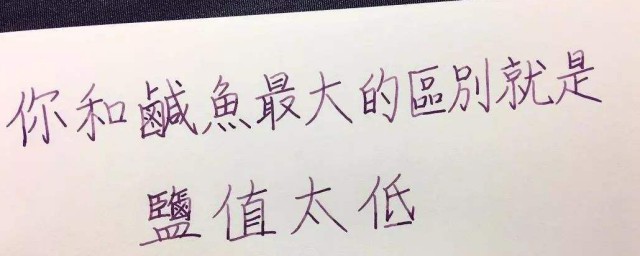 你和鹹魚最大的區別就是
鹽值太低